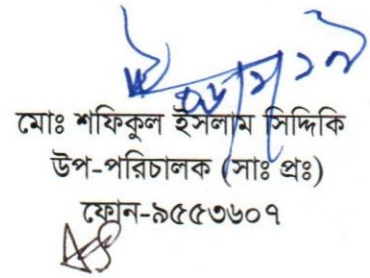 মোঃ শফিকুল ইসলাম সিদ্দিকি
উপ-পরিচালক (সাঃ প্রঃ)
ফোন-৯৫৫৩৬০৭